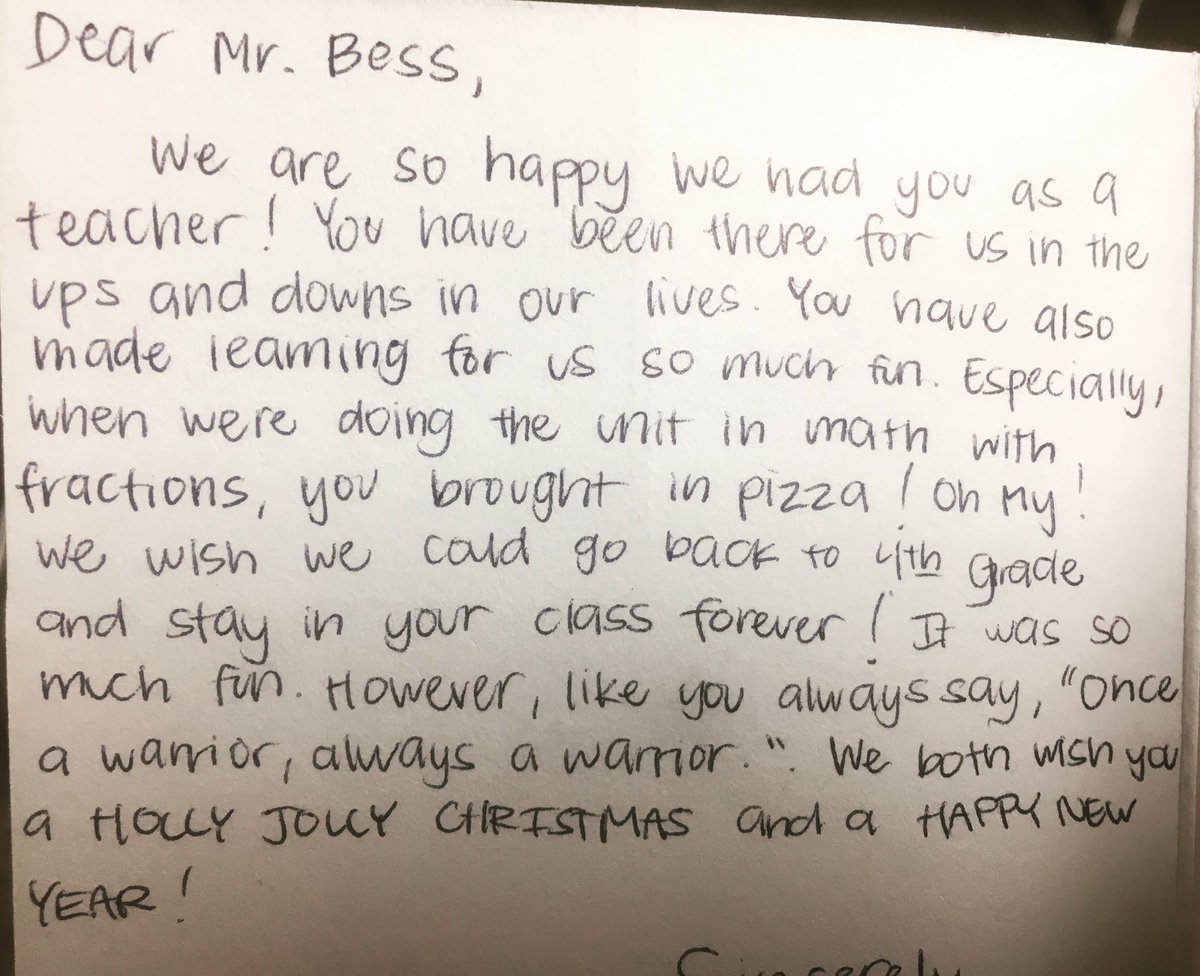 Dear Mr. Bess,
We are so happy we had you as a
teacher! You have been there for us in the
ups and downs in our lives. You have also
made learning for us so much fun. Especially,
when were doing the unit in math with
fractions, you brought in pizza! Oh My!
We wish we could go back to 4th grade
and stay in your class forever! It was so
much fun. However, like you always say, "Once
a warrior, always a warrior.". We both wish you
a HOLLY JOLLY CHRISTMAS and a HAPPY NEW
YEAR!
Sincerely